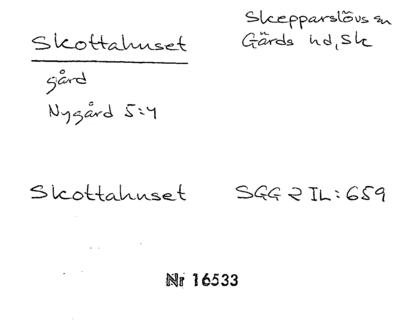 Skottahuset
Skepparslövs sn
Gärds hd, Sk
gård
Nygård 5:4
Skottahuset SGG 2 IL:659
Nr 16533